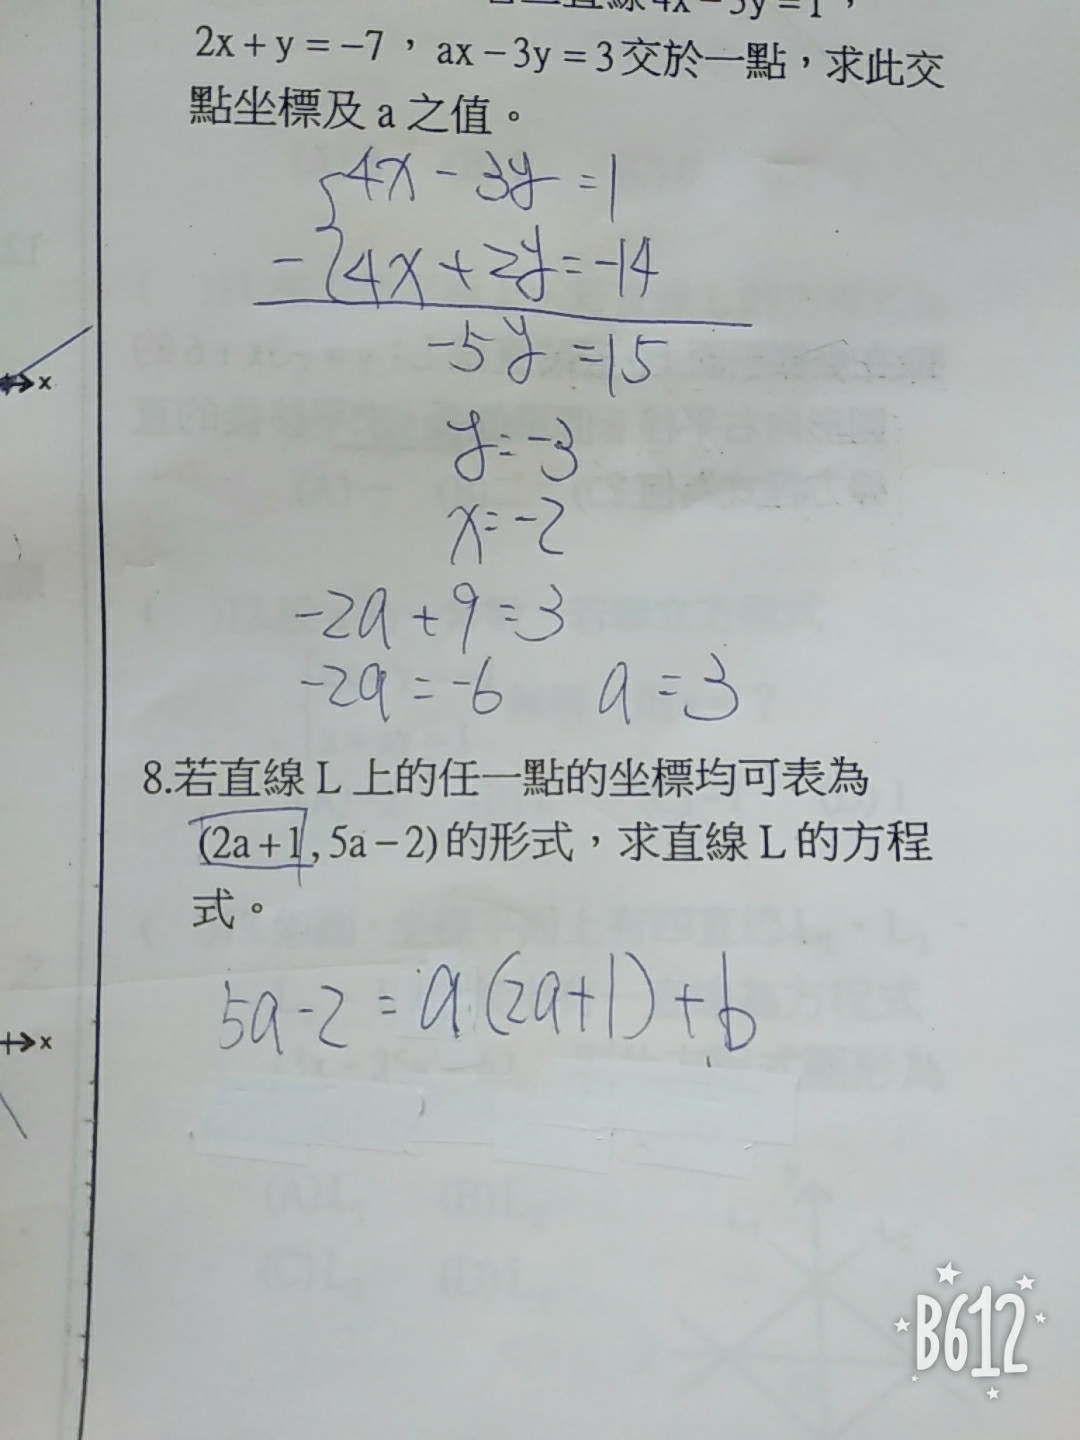 若二直線4x－3y＝1，
2x＋y＝－7，ax－3y＝3交於一點，求此交
點坐標及 a 之值。
4x－3y＝1
－ 4x＋2y＝－14
－5y＝15
y＝－3
x＝－2
－2a＋9＝3
－2a＝－6 a＝3
8.若直線 L 上的任一點的坐標均可表為
(2a＋1,5a－2)的形式，求直線 L 的方程
式。
5a－2＝a(2a＋1)＋b
x
x
B612